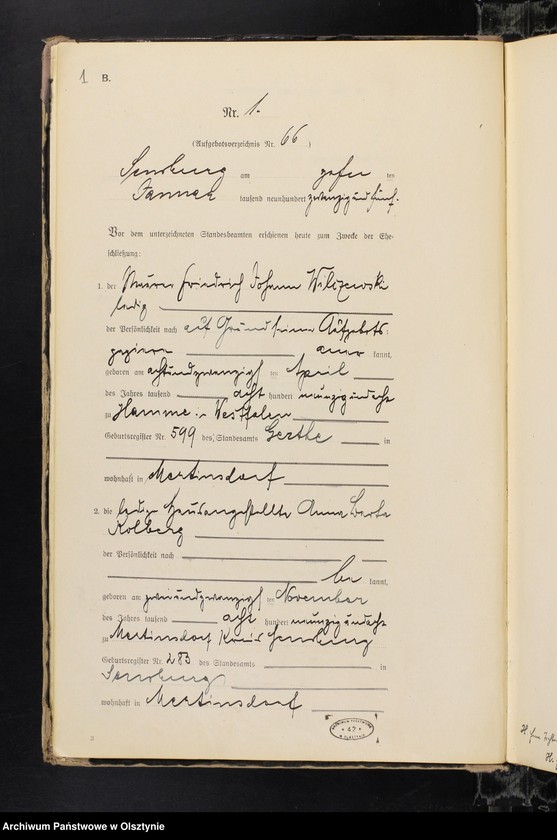 1 B.
Nr. 1.
(Aufgebotsverzeichnis Nr. 66)
Sensburg am zehn ten
Januar tausend neunhundert zwanzig und fünf.
Vor dem unterzeichneten Standesbeamten erschienen heute zum Zwecke der Ehe-
schließung:
1. der Maurer Friedrich Johann Wilczewski
ledig
der Persönlichkeit nach auf Grund seiner Aufgebots-
papiere aner kannt,
geboren am achtundzwanzigsten April
des Jahres tausend acht hundert neunzig und acht
zu Hamme in Westfalen
Geburtsregister Nr. 599 des Standesamts Gerthe in
wohnhaft in Martinsdorf
2. die ledige Hausangestellte Anna Berta
Kolberg
der Persönlichkeit nach
be kannt,
geboren am zweiundzwanzigsten November
des Jahres tausend acht hundert neunzig und acht
zu Martinsdorf Kreis Sensburg
Geburtsregister Nr. 283 des Standesamts in
Sensburg
wohnhaft in Martinsdorf
47
Archiwum Państwowe w Olsztynie